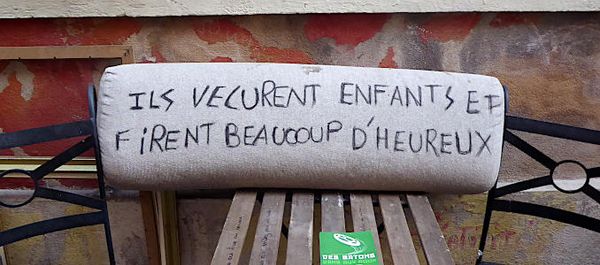 ILS VECURENT ENFANTS ET
FIRENT BEAUCOUP D'HEUREUX
DES BATONS